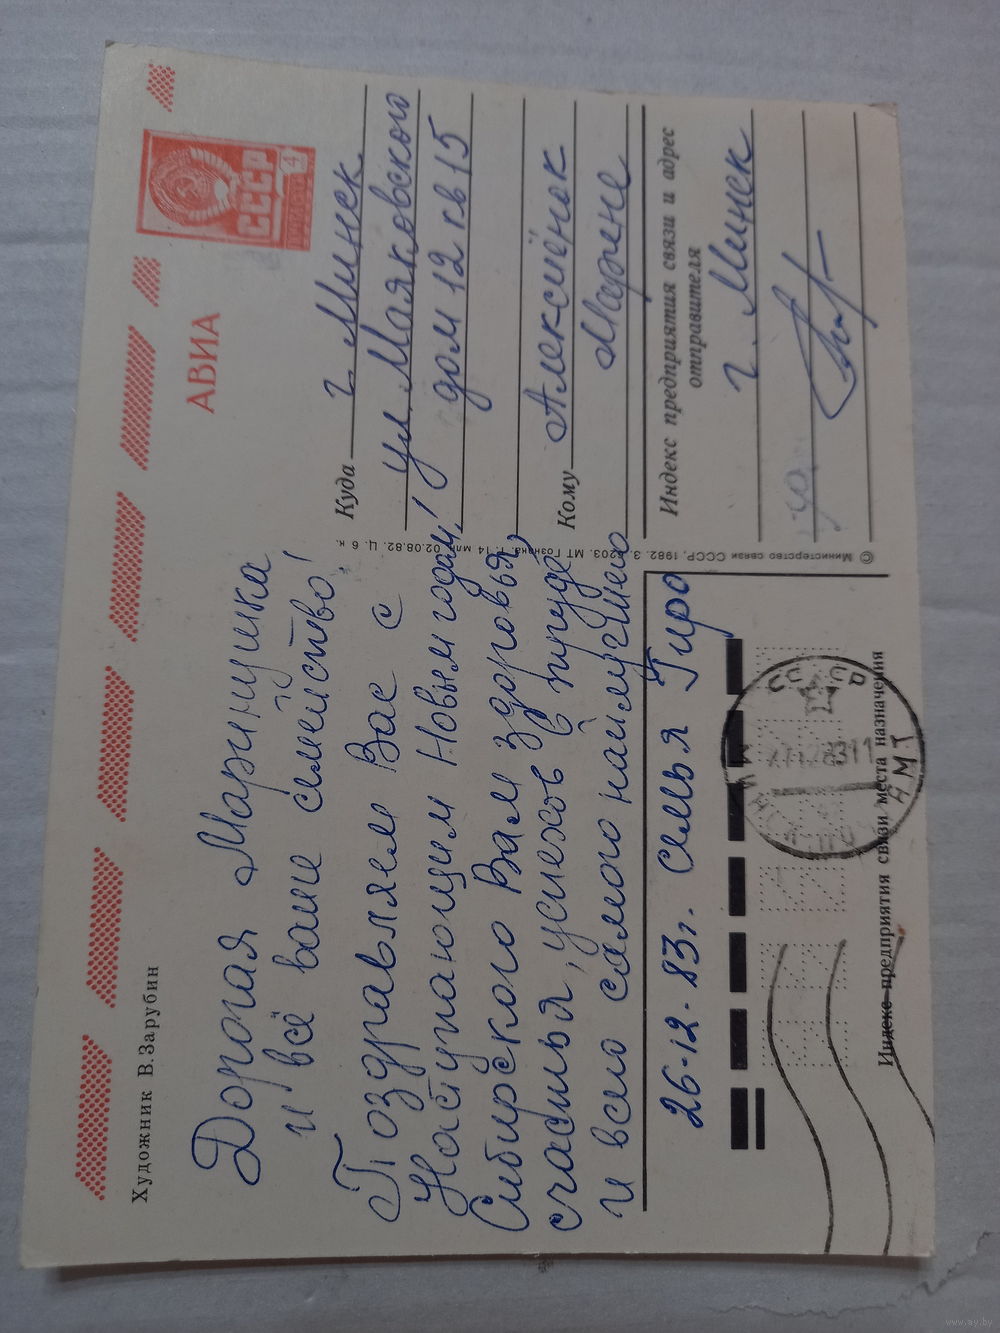 Художник В. Зарубин
АВИА
СССР
4
Дорогая Маринушка
и всё ваше семейство!
Поздравляем Вас с
Наступающим Новым годом!
Сибирского Вам здоровья,
счастья, успехов в труде
и всего самого наилучшего
26-12-83г. семья Гиро
Куда г. Минск
ул. Маяковского
дом 12 кв 15
Кому Алексеёнок
Марине
Индекс предприятия связи и адрес
отправителя
г. Минск
© Министерство связи СССР, 1982. З. 6203. МТ Гознака. Т. 14 млн. 02.08.82. Ц. 6 к.
Индекс предприятия связи места назначения
АМТ
www.ay.by